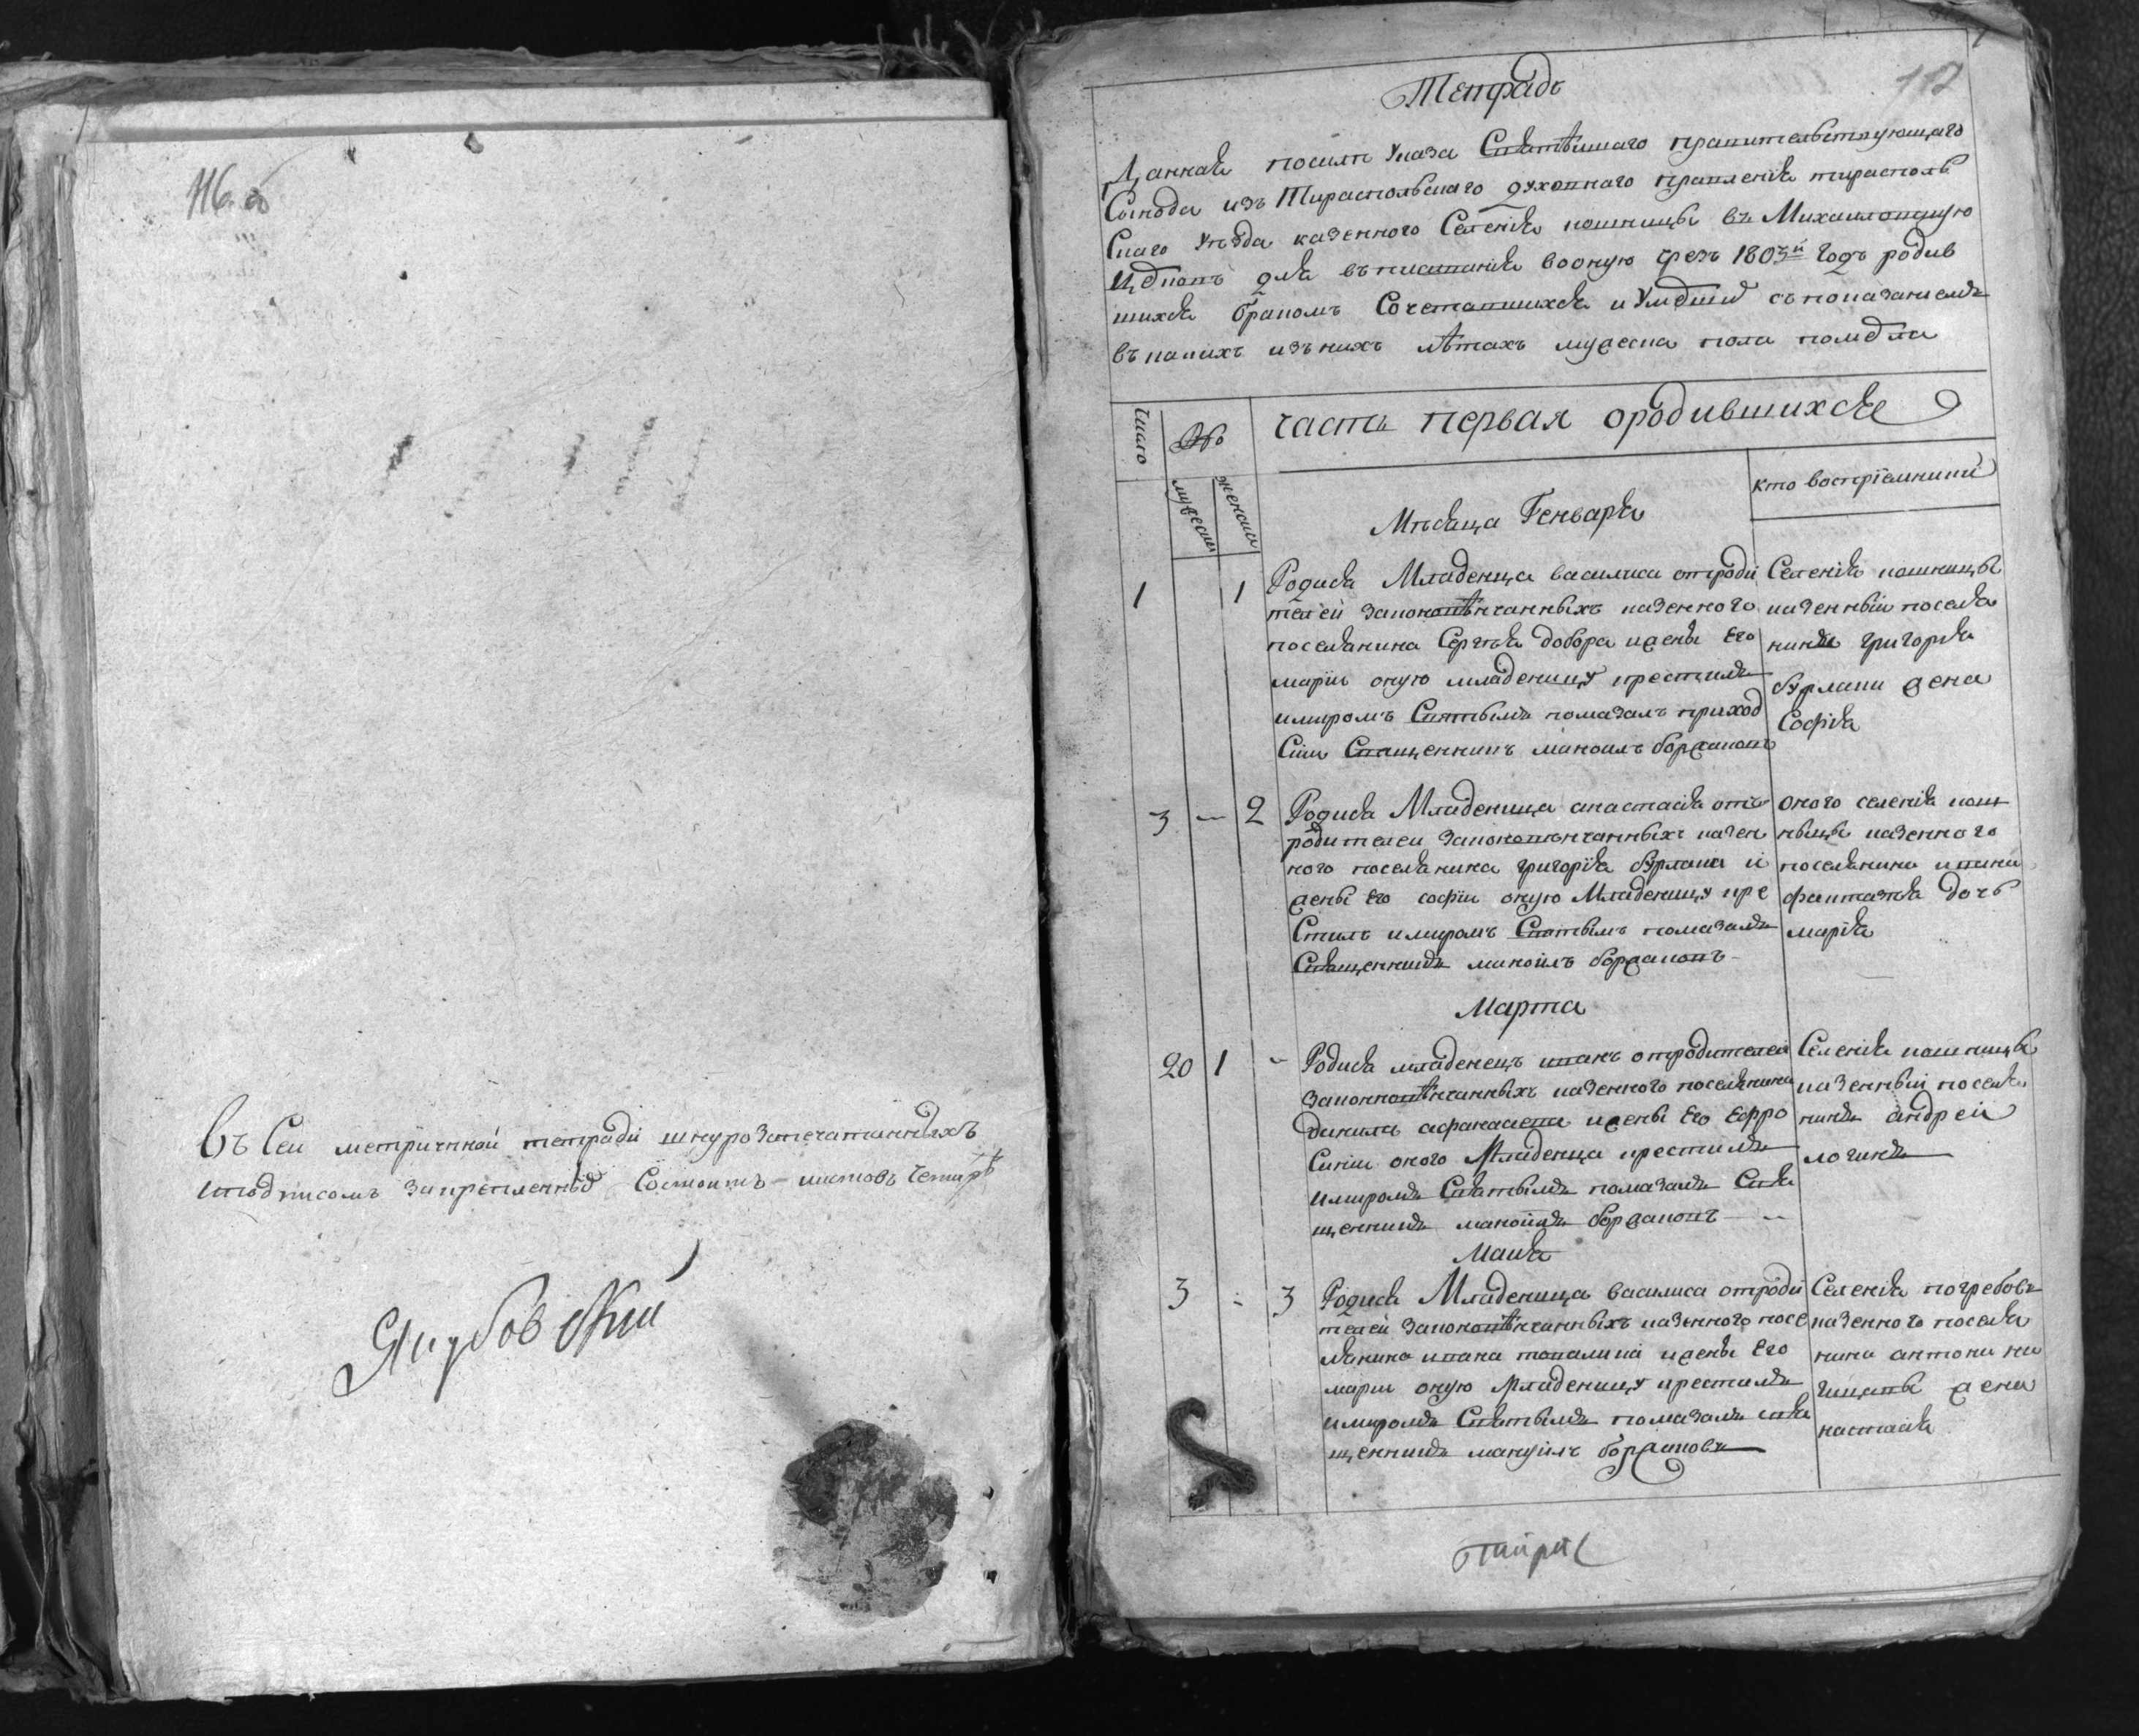 116 об
Въ Сеи метричной тетради шнурозапечатанныхъ
иподписомъ закрепленныхъ Состоитъ – листовъ Четирѣ
Якубовскій
117
Тетрадь
Данная посилѣ Указа Святѣйшаго правительствующаго
Сѵнода изъ Тираспольскаго духовнаго правленія тирасполь
скаго Уѣзда казенного Селенія кошницы въ Михаиловскую
Церковь для въписанія вооную чрезъ 1803й Годъ родив
шихся бракомъ Сочетавшихся и Умершихъ съпоказаниемъ
въкакихъ изънихъ лѣтахъ мужеска пола померла
Число
№
мужескъ
женскъ
часть первая ородившихся
кто воспріемники
Мѣсяца Генваря
1
1
Родися Младенца василиса отроди
телей законовѣнчанныхъ казенного
поселянина Сергѣя добора ижены Его
маріи оную младеницу крестилъ
имиромъ Святымъ помазалъ приход
Скій Священникъ маноилъ боржаковъ
Селенія кошницы
казенный поселя
нинъ григорія
бурлаки жена
Софія
3
–
2
Родися Младеница анастасія отъ
родителеи законовѣнчанныхъ казен
ного поселянина григорія бурлака и
жены Его софіи оную Младеницу кре
Стилъ имиромъ Святымъ помазалъ
Священникъ маноилъ боржаковъ –
оного селенія кош
ницы казенного
поселянина ивана
дочь
марія
Марта
20
1
–
Родися младенецъ иванъ отродителей
законовѣнчанныхъ казенного поселянина
данила афанасева ижены Его Ефро
Синіи оного Младенца крестилъ
имиромъ Святымъ помазалъ Свя
щенникъ маноилъ боржаковъ –
Селенія кошницы
казенный поселя
нинъ андрей
логинъ
Маия
3
–
3
Родися Младеница василиса отроди
телей законовѣнчанныхъ казенного посе
лянина ивана ижены Его
марии оную Младеницу крестилъ
имиромъ Святымъ помазалъ свя
щенникъ мануилъ боржаковъ
Селенія погребовъ
казенного поселя
нина антона ки
жена
настасія